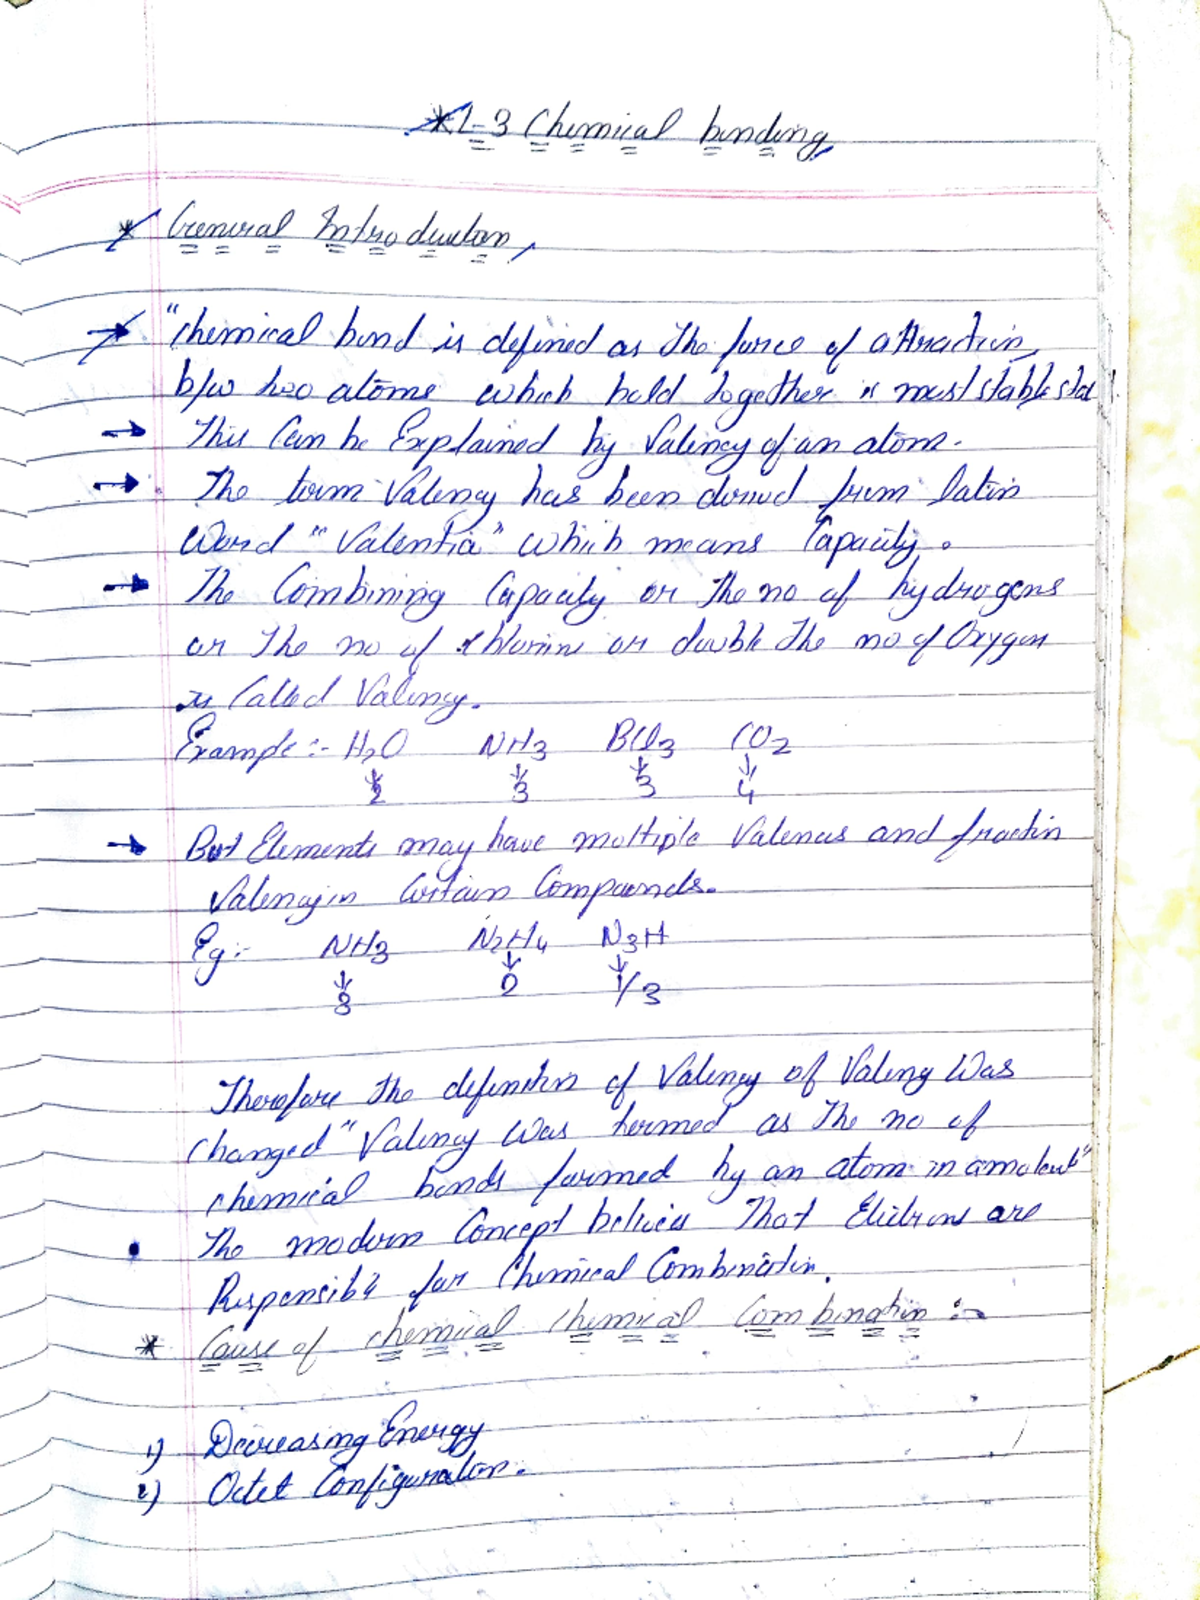 *L-3 Chemical bonding
* General Introduction
→ "chemical bond is defined as The force of attraction
b/w two atoms which hold together in most stable stat
→ This Can be Explained by Valency of an atom.
→ The term Valency has been derived from latin
Word "Valentia" which means Capacity.
→ The Combining Capacity or The no of hydrogens
or The no of chlorine or double The no of Oxygen
is Called Valency.
Example :- H2O NH3 BCl3 CO2
↓ ↓ ↓ ↓
2 3 3 4
→ But Elements may have multiple Valencies and fraction
Valency in Certain Compounds.
Eg:- NH3 N2H4 N3H
↓ ↓ ↓
3 2 1/3
Therefore The definition of Valency of Valency Was
changed "Valency Was termed as The no of
chemical bonds formed by an atom in a molecule"
• The modern Concept believes That Electrons are
Responsible for Chemical Combination.
* Cause of chemical chemical Combination :-
1) Decreasing Energy
2) Octet Configuration.